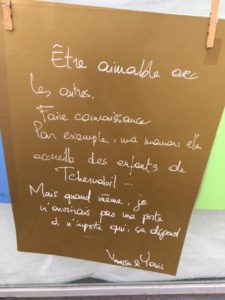 Être aimable avec
les autres,
Faire connaissance
Par exemple, ma maman elle
accueille des enfants de
Tchernobil ...
Mais quand même, je
n'ouvrirais pas ma porte
à n'importe qui, ça dépend
Vanessa et